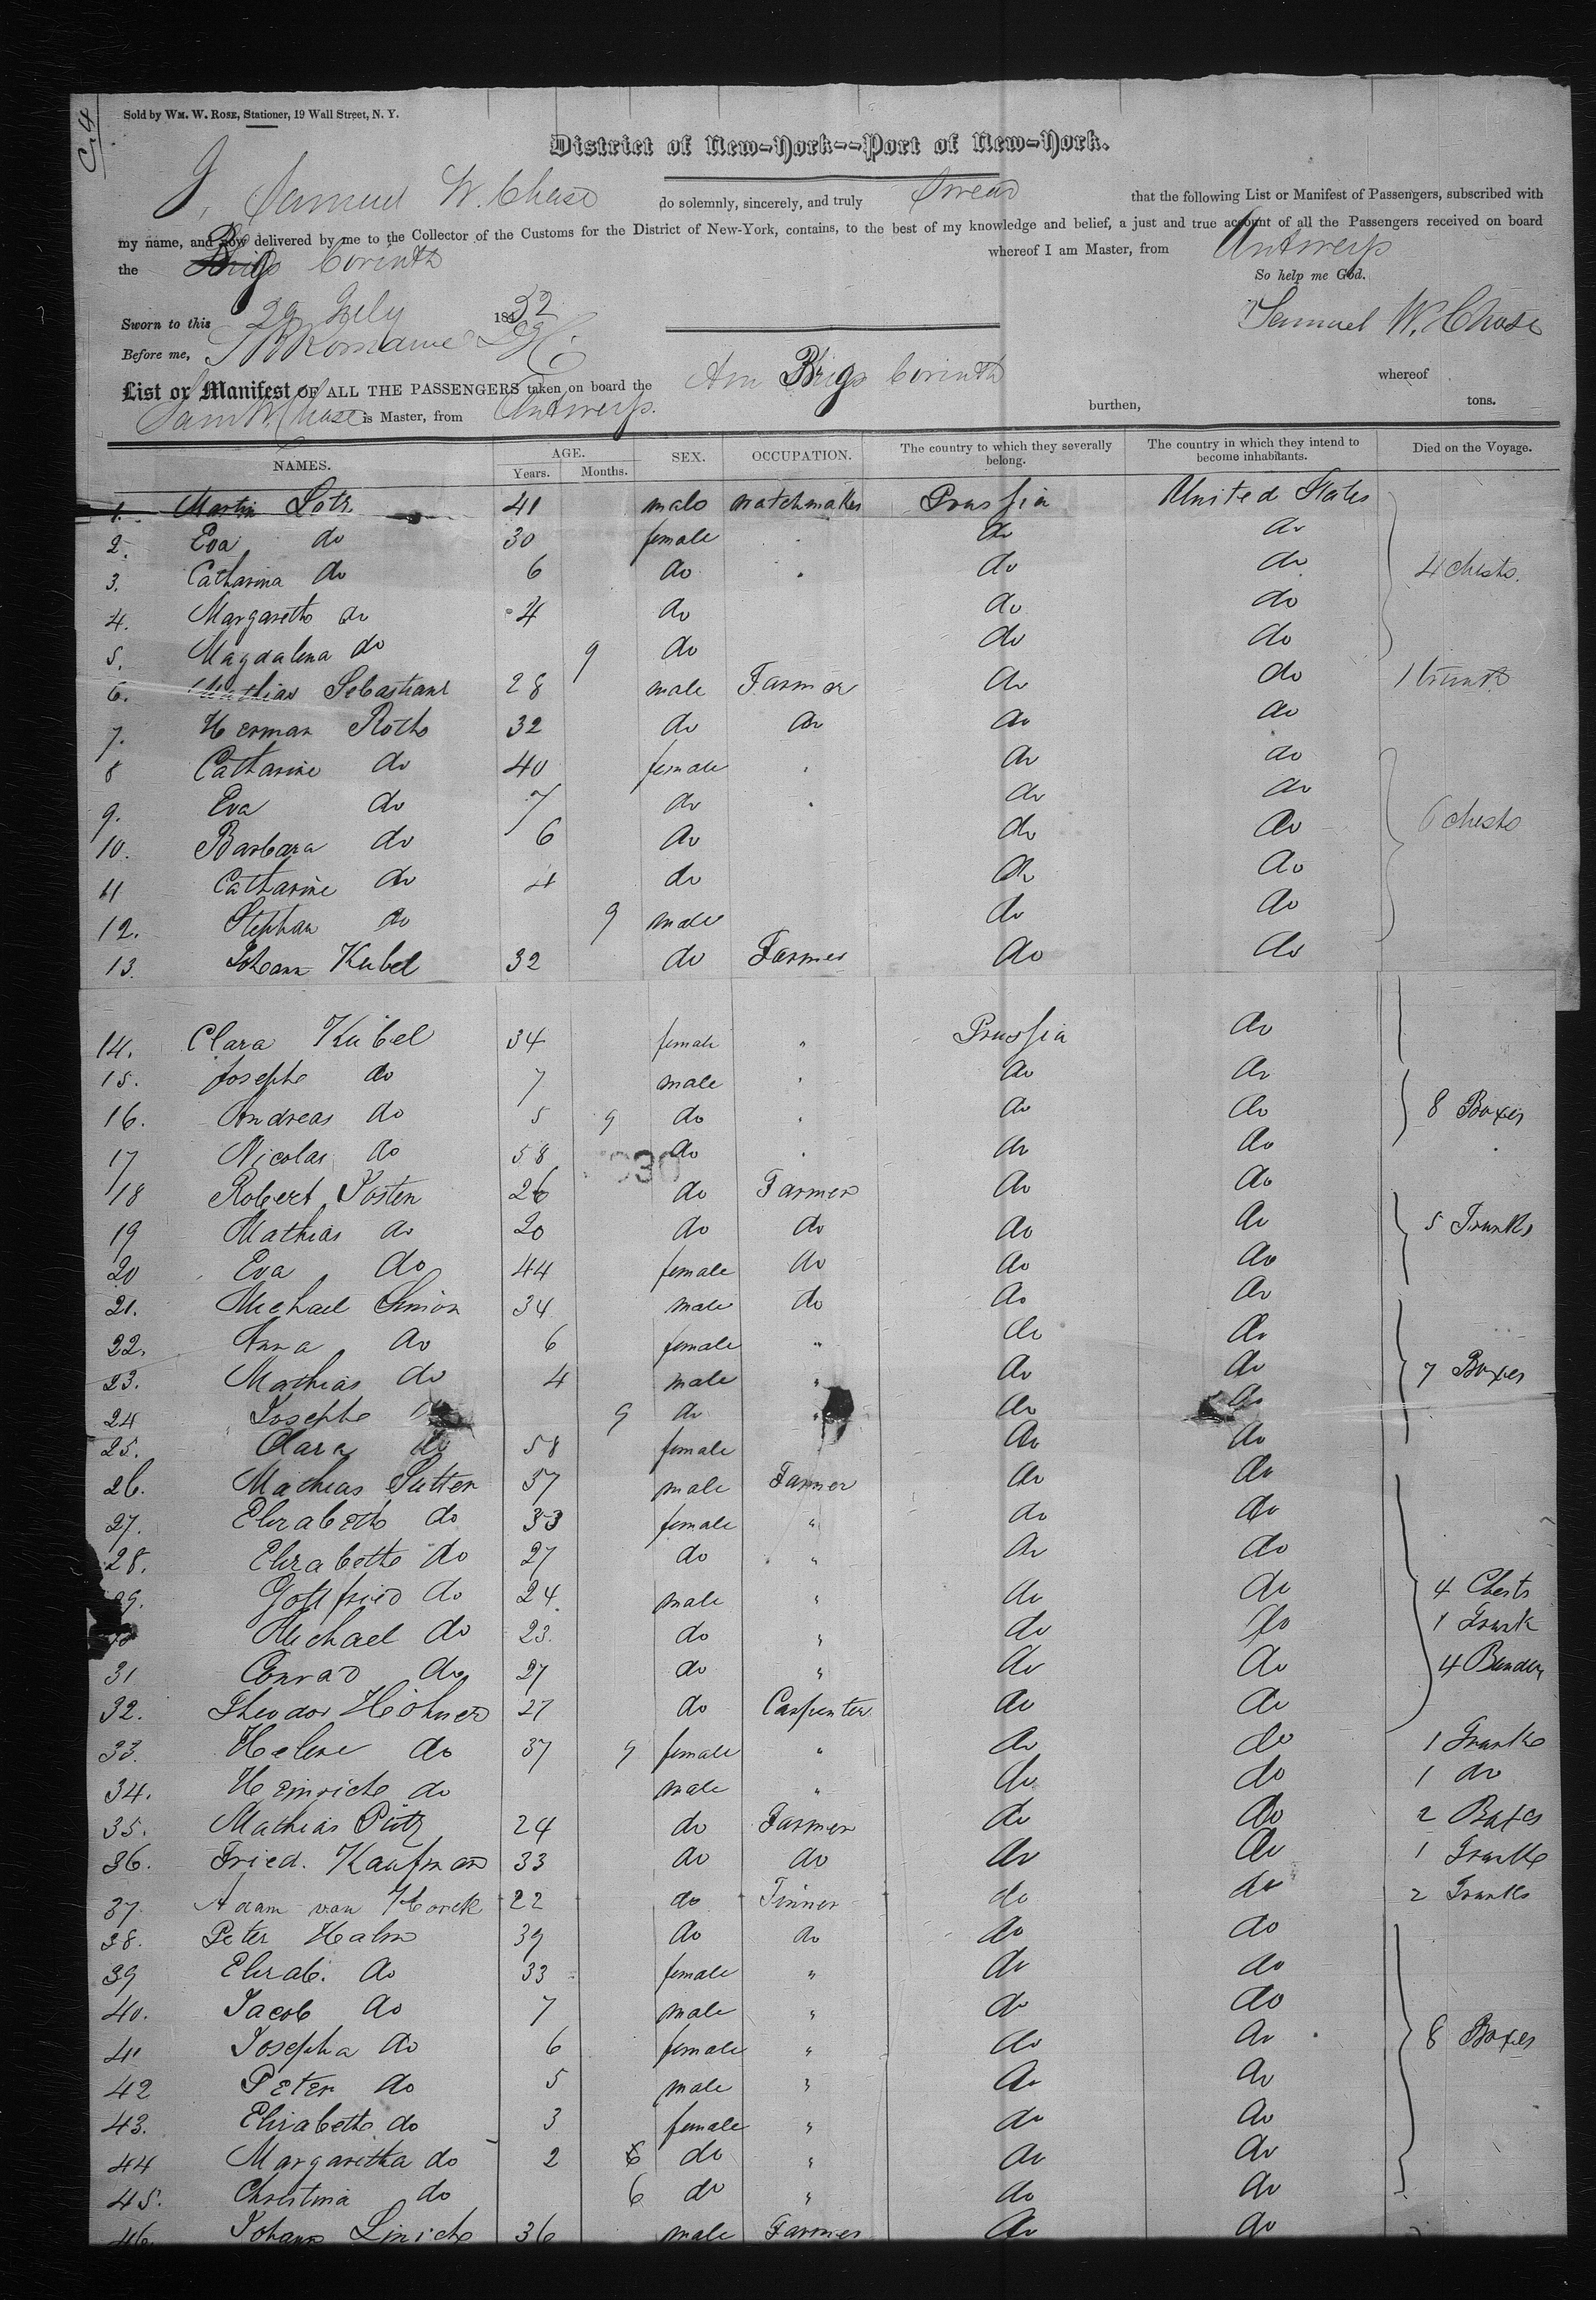 C.4
Sold by Wm. W. Rose, Stationer, 19 Wall Street, N. Y.
District of New-York--Port of New-York.
I, Samuel W. Chase do solemnly, sincerely, and truly Swear that the following List or Manifest of Passengers, subscribed with
my name, and now delivered by me to the Collector of the Customs for the District of New-York, contains, to the best of my knowledge and belief, a just and true account of all the Passengers received on board
the Brig Corinth whereof I am Master, from Antwerp
So help me God.
Sworn to this 29 July 1852 Samuel W. Chase
Before me,
List or Manifest OF ALL THE PASSENGERS taken on board the Am Brig Corinth whereof
Sam W. Chase is Master, from Antwerp. burthen, tons.
NAMES. AGE. Years. Months. SEX. OCCUPATION. The country to which they severally belong. The country in which they intend to become inhabitants. Died on the Voyage.
1. Martin Lotz 41 male watchmaker Prussia United States
2. Eva do 30 female do do
3. Catharina do 6 do do do 4 chests.
4. Margareth do 4 do do do
5. Magdalena do 9 do do do
6. Mathias Sebastiani 28 male Farmer do do 1 trunk
7. Herman Roth 32 do do do do
8 Catharine do 40 female do do
9. Eva do 7 do do do
10. Barbara do 6 do do do 6 chests
11 Catharine do 4 do do do
12. Stephan do 9 male do do
13. Johann Kubel 32 do Farmer do do
14. Clara Kubel 34 female " Prussia do
15. Joseph do 7 male do do
16. Andreas do 5 9 do do do 8 Boxes
17 Nicolas do 58 do do do
18 Robert Josten 26 do Farmer do do
19 Mathias do 20 do do do do 5 Trunks
20 Eva do 44 female do do do
21. Michael Simon 34 male do do do
22. Anna do 6 female " do do
23. Mathias do 4 male " do do 7 Boxes
24 Joseph do 9 do " do do
25. Clara do 58 female do do
26. Mathias Sutter 57 male Farmer do do
27. Elizabeth do 33 female " do do
28. Elizabeth do 27 do " do do
29. Gottfried do 24 male " do do 4 Chests
Michael do 23. do " do do 1 Trunk
31 Conrad do 27 do " do do 4 Bundes
32. Theodor Höhner 27 do Carpenter do do
33. Helene do 37 9 female " do do 1 Trunk
34. Heinrich do male " do do 1 do
35. Mathias Pütz 24 do Farmer do do 2 Boxes
36. Fried. Kaufman 33 do do do do 1 Trunk
37. Adam van Horck 22 do Tinner do do 2 Trunks
38. Peter Halm 39 do do do do
39 Elizab. do 33 female " do do
40. Jacob do 7 male " do do
41 Josepha do 6 female " do do 8 Boxes
42 Peter do 5 male " do do
43. Elisabeth do 3 female " do do
44 Margaretha do 2 6 do " do do
45. Christina do 6 do " do do
46. Johann Linich 36 male Farmer do do